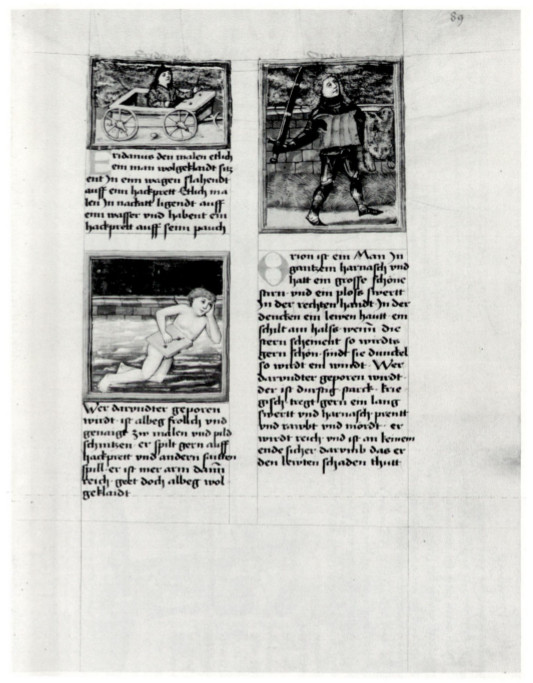 89
Eridanus den malen etlich
ein man wolgeklaidt siz
ent In einn wagen slahendt
auff einn hackprett Etlich ma
len In nackatt ligendt auff
einn wasser vnd habent ein
hackprett auff seim pauch
Wer darvndter geporen
wirdt ist albeg frolich vnd
genaigt zw malen vnd pild
schnitzen er spilt gern auff
hackprett vnd andern
spill er ist mer arm dann
reich gett doch albeg wol
geklaidt
Orion ist ein Man In
gantzem harnasch vnd
hatt ein grosse schöne
stirn vnd ein ploss swertt
In der rechten handt In der
dencken ein lewen hautt ein
schilt am halss wenn die
stern scheinent so wirdts
gern schön sindt sie dunckel
so wirdt ein windt Wer
darvndter geporen wirdt
der ist durstig starck krie
gisch tregt gern ein lang
swertt vnd harnasch prentt
vnd rawbt vnd mördt er
wirdt reich vnd ist an keinem
ende sicher darvmb das er
den lewten schaden thutt